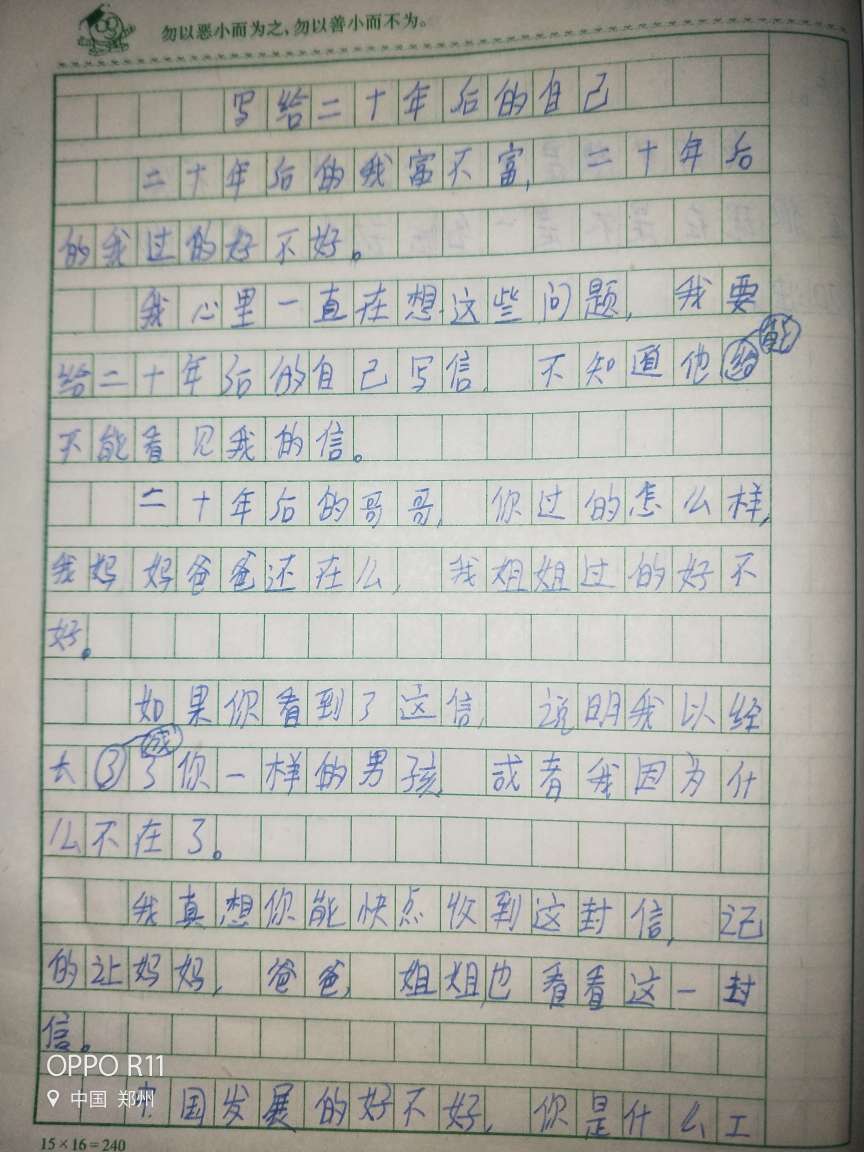 勿以恶小而为之，勿以善小而不为。
写给二十年后的自己
二十年后的我富不富，二十年后
的我过的好不好。
我心里一直在想这些问题，我要
给二十年后的自己写信，不知道他能
不能看见我的信。
二十年后的哥哥，你过的怎么样，
我妈妈爸爸还在么，我姐姐过的好不
好。
如果你看到了这信，说明我以经
大成了你一样的男孩，或者我因为什
么不在了。
我真想你能快点收到这封信，记
的让妈妈，爸爸，姐姐也看看这一封
信。
中国发展的好不好，你是什么工
OPPO R11
中国 郑州
15×16=240